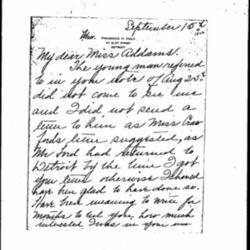 September 15th
Mrs.
My dear Miss Addams:
The young man referred
to in your note of Aug 23rd
did not come to see me
and I did not send a
letter to him as Miss
letter suggested, as
Mr Ford had returned to
Detroit by the time I got
your letter otherwise I should
have been glad to have done so.
Have been meaning to write for
months to tell you how much
interested I was in your